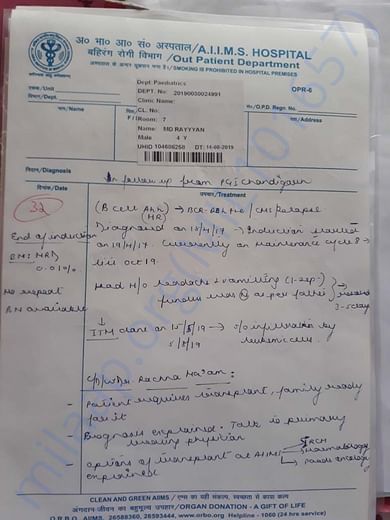 अ० भा० आ० सं० अस्पताल/A.I.I.M.S. HOSPITAL
बहिरंग रोगी विभाग/Out Patient Department
अस्पताल के अन्दर धूम्रपान मना है।/SMOKING IS PROHIBITED IN HOSPITAL PREMISES
OPR-6
एकक/Unit
विभाग/Dept.
नाम/Name
Dept: Paediatrics
DEPT. No: 20190030024991
Clinic Name:
CL. No:
Room: 7
Name: MD RAYYYAN
Male 4 Y
UHID 104608258 DT: 14-08-2019
F/
O.P.D. Regn. No.
पता/Address
निदान/Diagnosis
In follow up from PGI Chandigarh
दिनांक/Date
उपचार/Treatment
32
(B cell ALL) → /CNS Relapse
(HR)
Diagnosed on 15/4/17 → Induction started
on 19/4/17. Currently on Maintenance cycle 8 →
till Oct 19.
End of induction
BM: MRD
0.01%
No report
BM available
Had H/o headache + vomiting
fundus was as per father
3-5 days
↓
ITM done on → s/o infiltration by
5/8/19 leukemic cells.
C/D/W Dr Rachna Ma'am:
- Patient requires transplant, family ready
for it
- Diagnosis explained. Talk to primary
treating physician
- options of transplant at AIIMS
explained
CLEAN AND GREEN AIIMS / एम्स का यही संकल्प, स्वच्छता से काया कल्प
अंगदान-जीवन का बहुमूल्य उपहार/ORGAN DONATION - A GIFT OF LIFE
O.R.B.O. AIIMS, 26588360, 26593444, www.orbo.org Helpline - 1060 (24 hrs service)
milaap.org